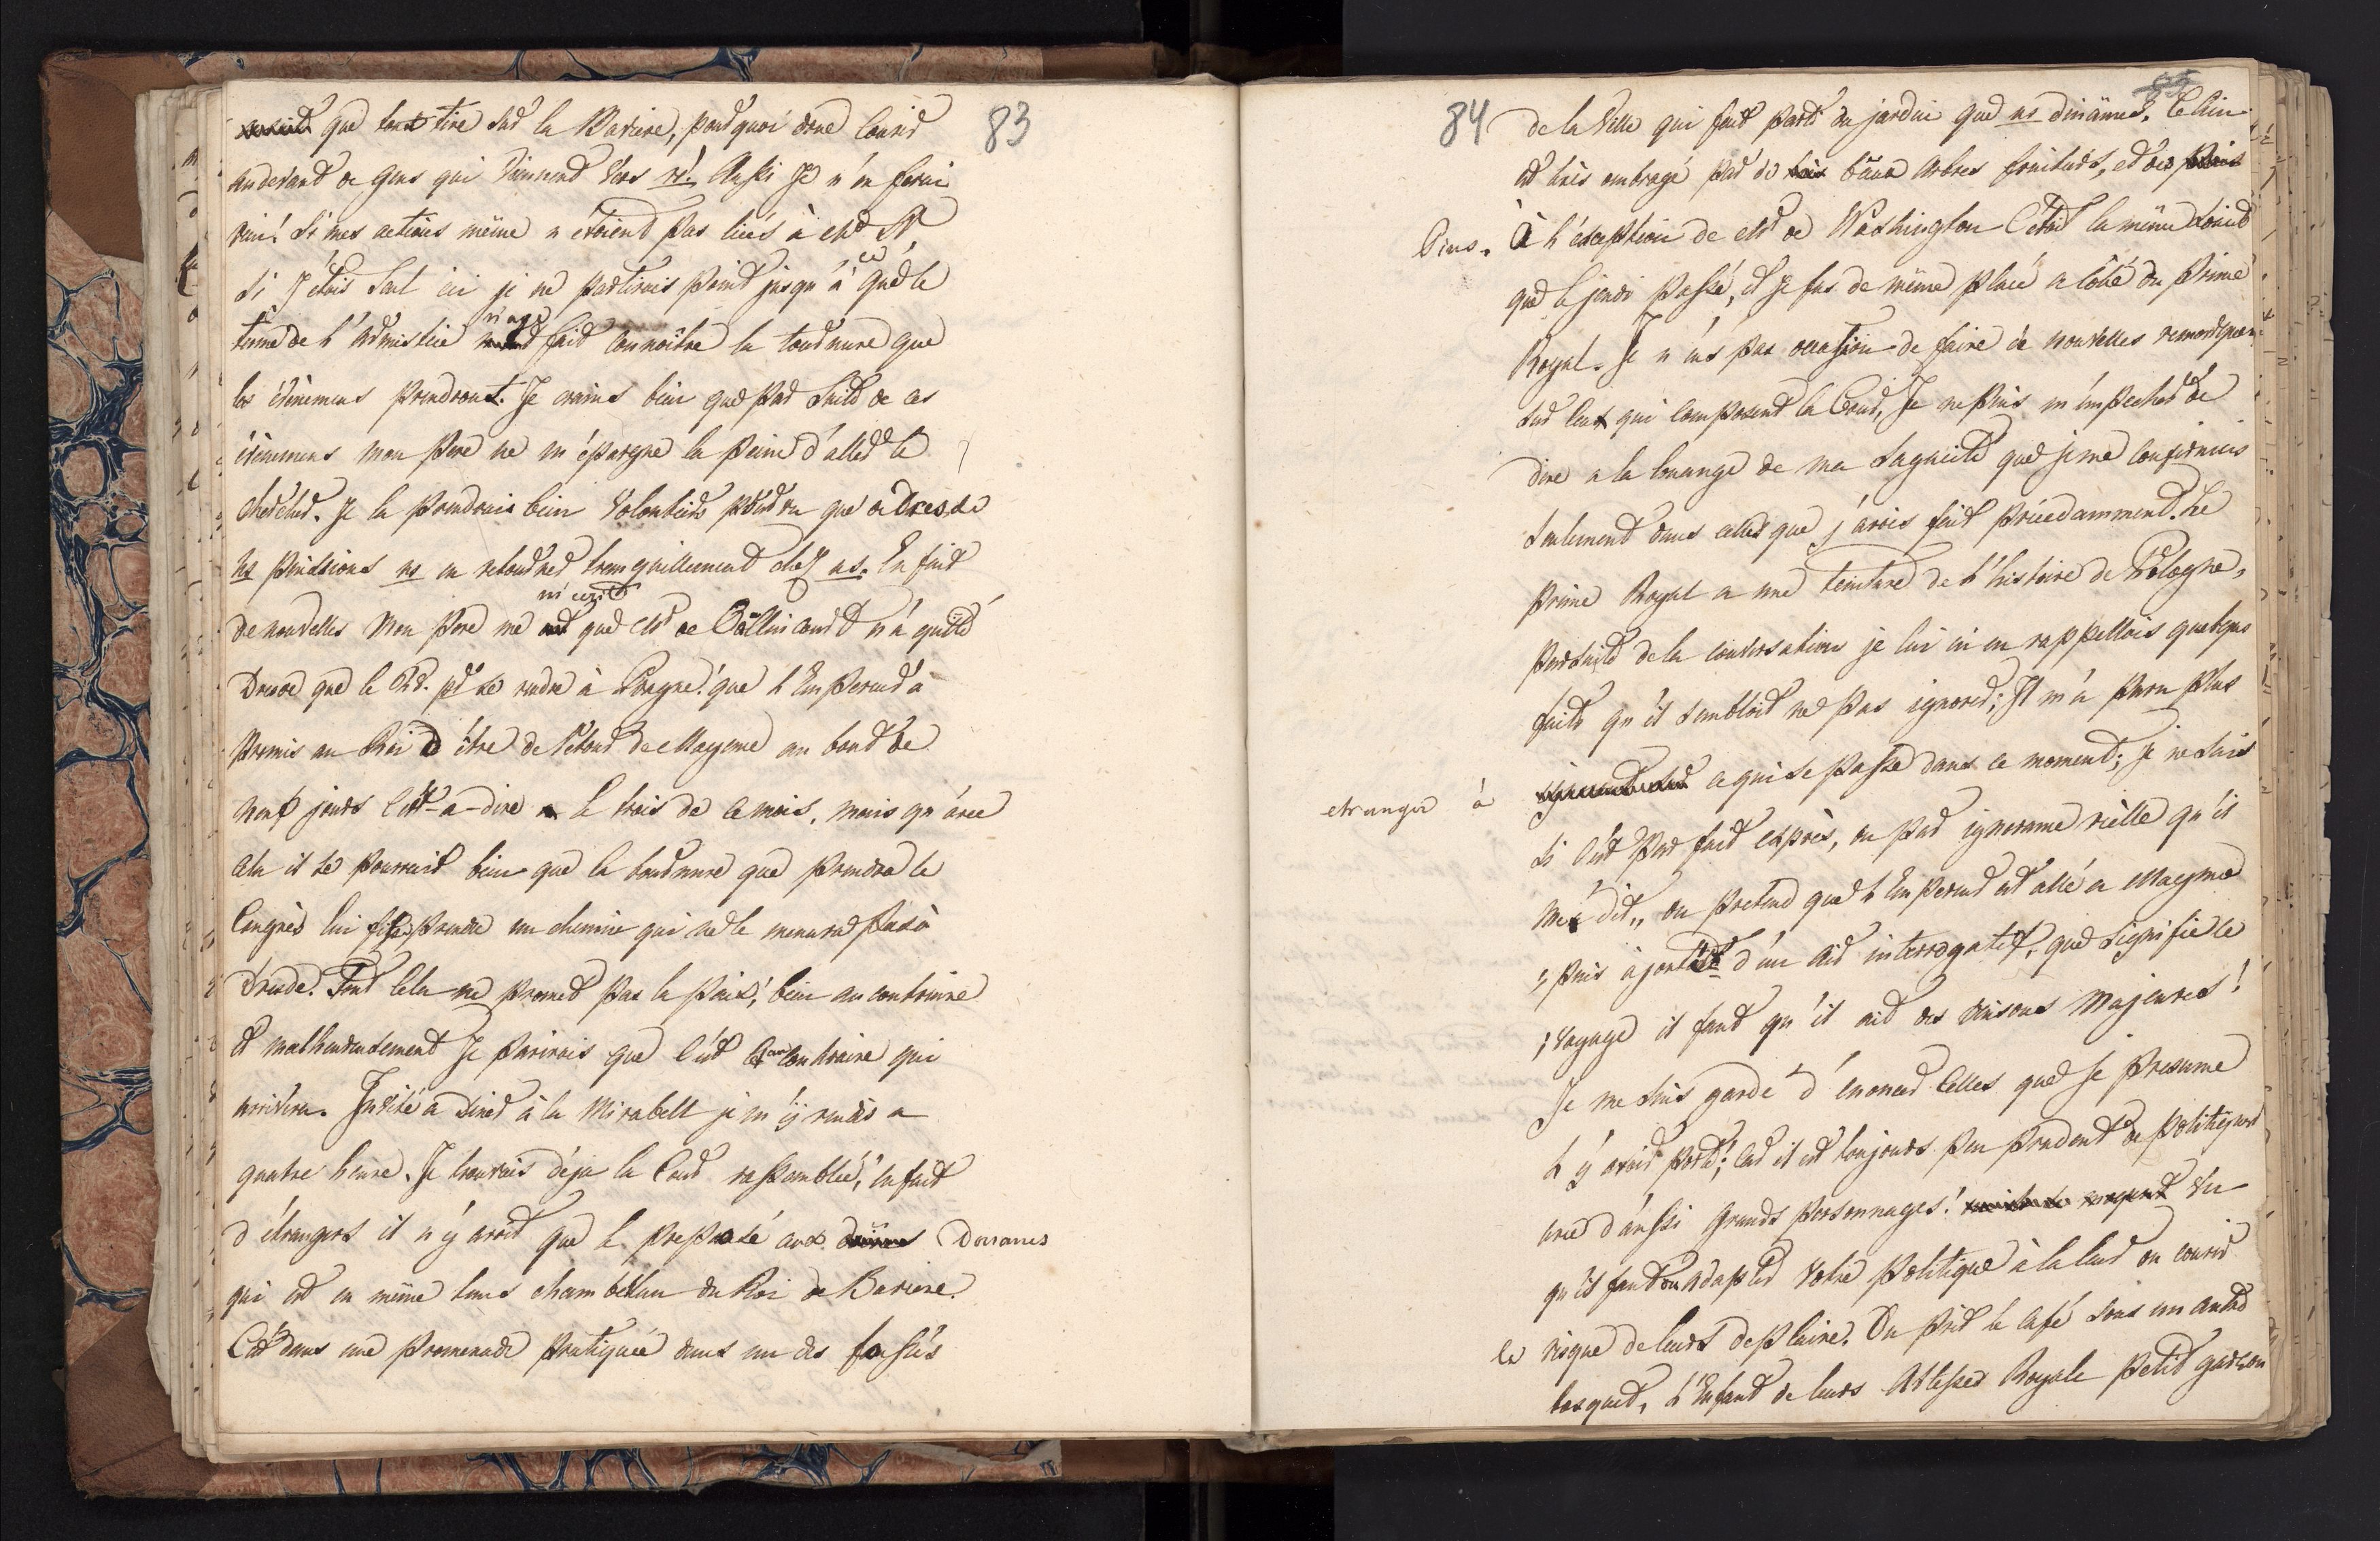 83
que tout tire sur la Baviere, pourquoi donc courir
au devant de gens qui viennent vers ns! Aussi Je n'en ferai
rien! Si mes actions même n'étoient pas liées à
si J'étois seul ici je ne partirois point jusqu'à ce que le
terme de l'Armistice n'aye fait connoître la tournure que
les évènemens prendront. Je crains bien que par suite de ces
évènemens mon Pere ne m'épargne la peine d'aller le
chercher. Je la prendrois bien volontiers pourvu que de Dresde
ns puissions ns en retourner tranquillement chez ns. En fait
de nouvelles Mon Pere me m'écrit que Mr de Caulincourt n'a quitté
Dresde que le pr se rendre à Prague! que l'Empereur a
promis au Roi d'être de retour de Mayence au bout de
neuf jours c'est-a-dire le trois de ce mois, mais qu'avec
cela il se pourroit bien que la tournure que prendra le
Congrès lui fisse prendre un chemin qui ne le menera pas à
Dresde. Tout cela ne promet pas la paix, bien au contraire
et malheureusement Je parirois que c'est le contraire qui
arrivera. Invité a diner à la Mirabell je m'y rendis a
quatre heure. Je trouvais déja la Cour rassemblée, en fait
d'étrangers il n'y avoit que le preposé aux Douanes
qui est en même tems chambellan du Roi de Baviere.
C'est dans une promenade pratiquée dans un des fossés
84
de la Ville qui fait parti du jardin que ns dinâmes. Ce lieu
est très ombragé par de beaux arbres fruitiers, et des
Pins. À l'exception de Mr de Washington c'etoit la même société
que le jeudi passé, et je fus de même placé a côté du Prince
Royal. Je n'eus pas occasion de faire de nouvelles remarques
sur ceux qui composent la Cour, Je ne puis m'empecher de
dire a la louange de ma sagacité que je me confirmais
seulement dans celles que j'avois fait précedamment. Le
Prince Royal a une teinture de l'histoire de Pologne,
par suite de la conversation je lui en rappellois quelques
faits qu'il sembloit ne pas ignorer; Il m'a paru plus
etranger à ce qui se passe dans ce moment; je ne sais
si c'est par fait exprès, ou par ignorance réelle qu'il
me dit „ on pretend que l'Empereur est allé a Mayence
„ puis ajouta d'un air interrogatif, que signifie ce
„ voyage il faut qu'il ait des raisons majeures!
Je me suis gardé d'enoncer celles que je presume
l'y avoir porté; car il est toujours peu prudent de politiquer
avec d'aussi grands personnages! vu
qu'il faut ou adapter votre politique à la leur ou courir
le risque de leurs deplaire. On prit le café sous un autre
bosquet, l'Enfant de leurs Altesses Royale petit garson